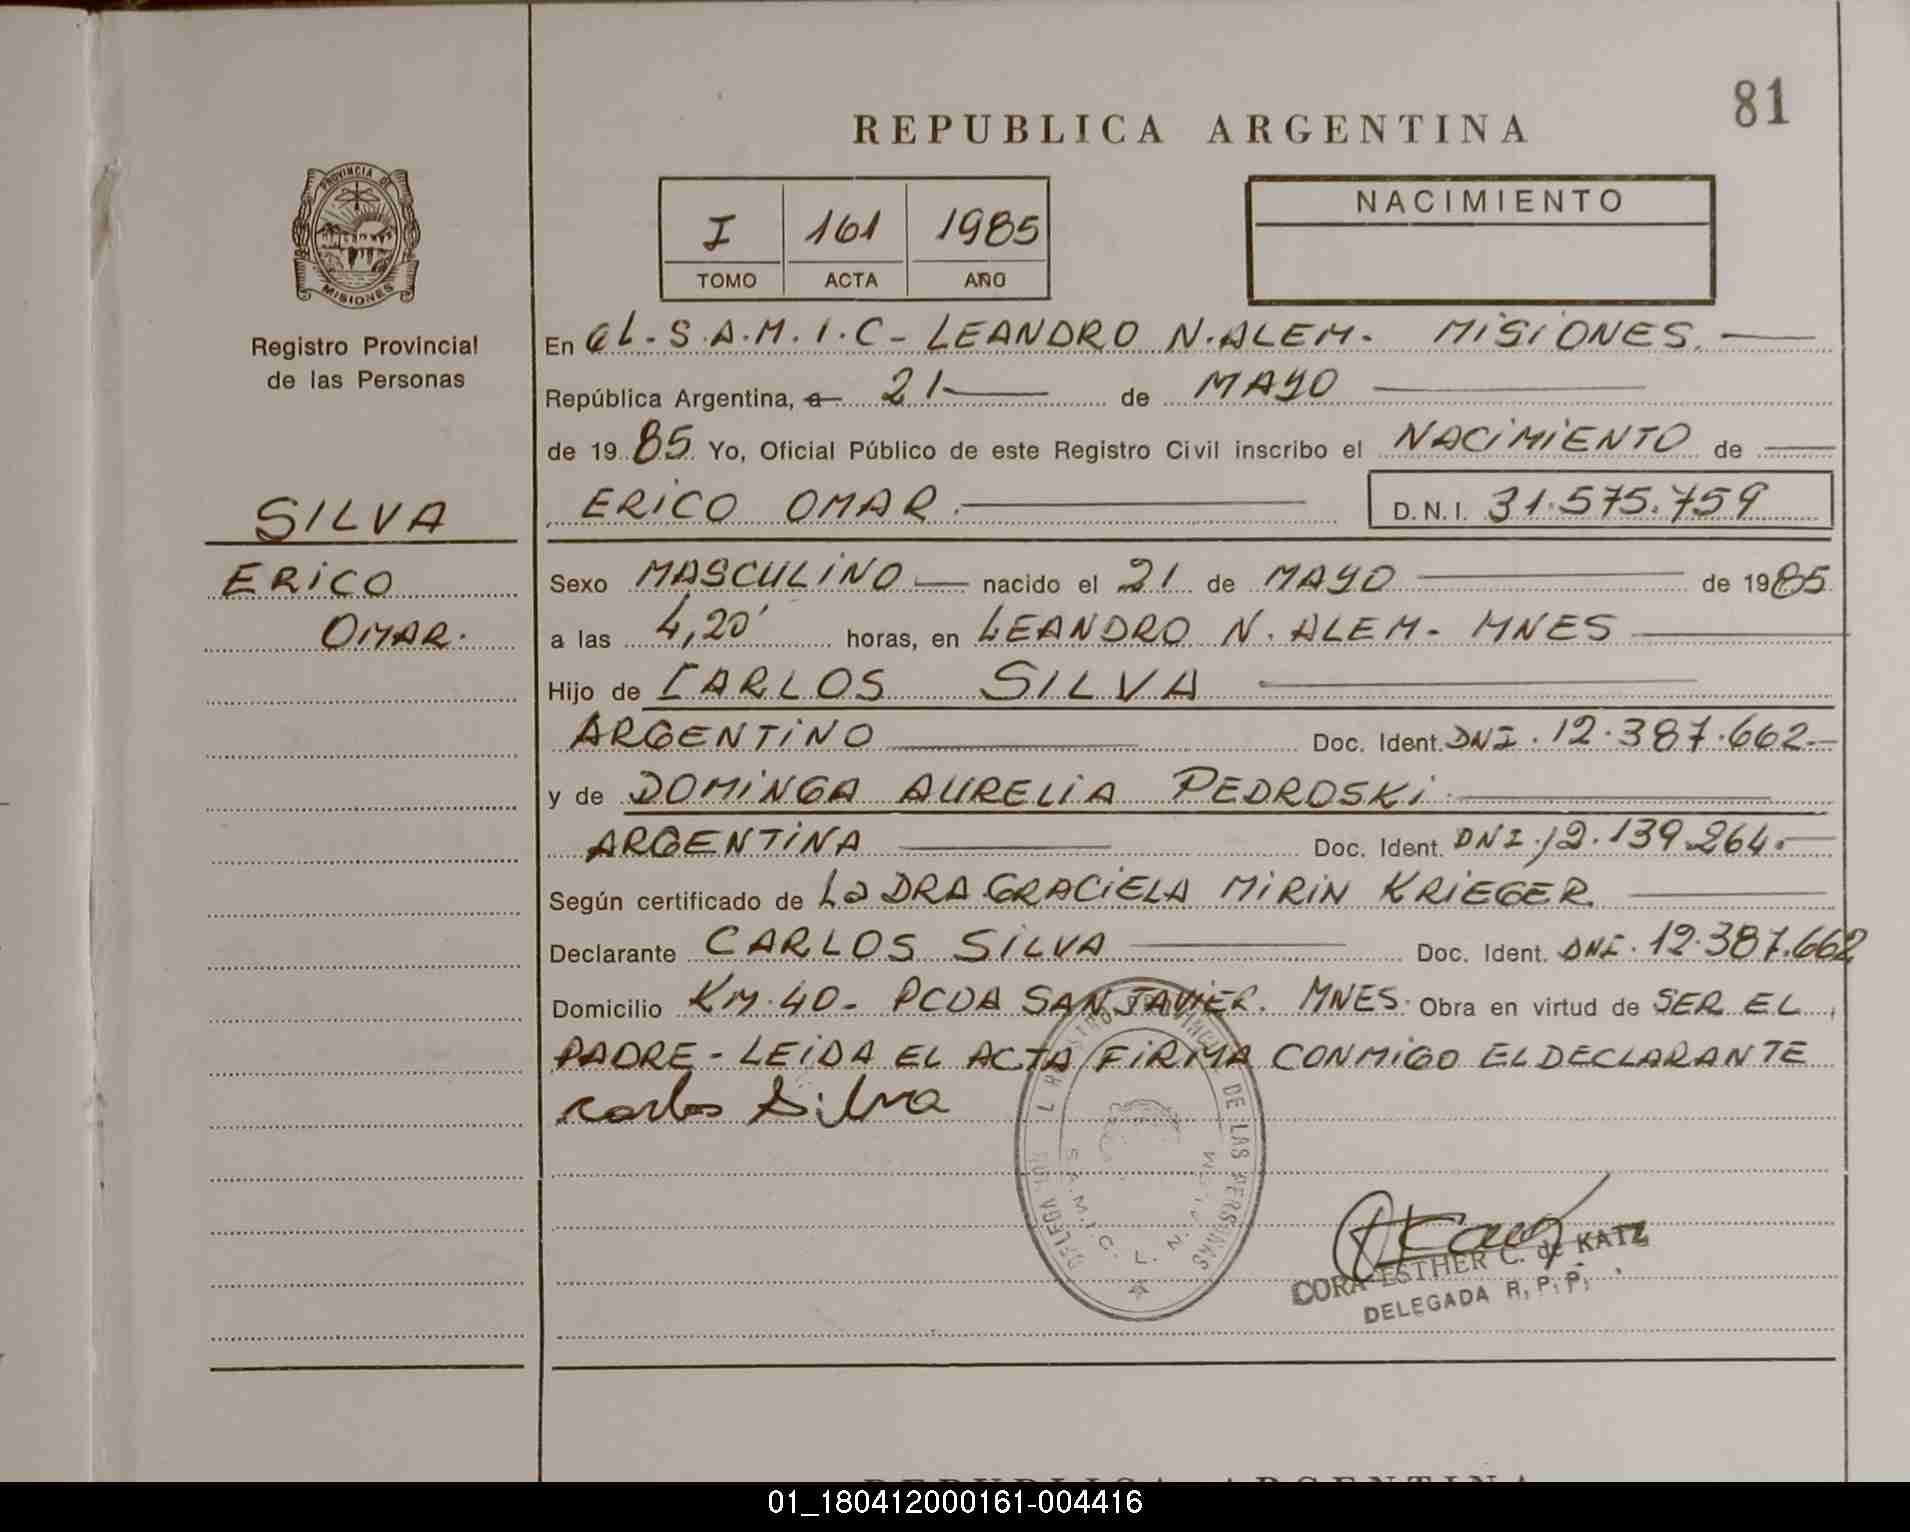 81
REPUBLICA ARGENTINA
PROVINCIA DE
MISIONES
Registro Provincial
de las Personas
I 161 1985
TOMO ACTA AÑO
NACIMIENTO
SILVA
ERICO
OMAR.
En el - S.A.M.I.C - LEANDRO N. ALEM - MISIONES.
República Argentina, a 21 de MAYO
de 1985 Yo, Oficial Público de este Registro Civil inscribo el NACIMIENTO de
ERICO OMAR. D.N.I. 31.575.759
Sexo MASCULINO nacido el 21 de MAYO de 1985
a las 4,20' horas, en LEANDRO N. ALEM - MNES
Hijo de CARLOS SILVA
ARGENTINO Doc. Ident. DNI. 12.387.662.-
y de DOMINGA AURELIA PEDROSKI.
ARGENTINA Doc. Ident. DNI. 12.139.264.-
Según certificado de La DRA GRACIELA MIRIN KRIEGER.
Declarante CARLOS SILVA Doc. Ident. DNI. 12.387.662
Domicilio KM. 40 - PCDA SAN JAVIER. MNES. Obra en virtud de SER EL
PADRE - LEIDA EL ACTA FIRMA CONMIGO EL DECLARANTE
Carlos Silva
DE LAS PERSONAS
S.A.M.I.C. L. N.
CORA ESTHER C. de KATZ
DELEGADA R. P. P.
REPUBLICA ARGENTINA
01_180412000161-004416